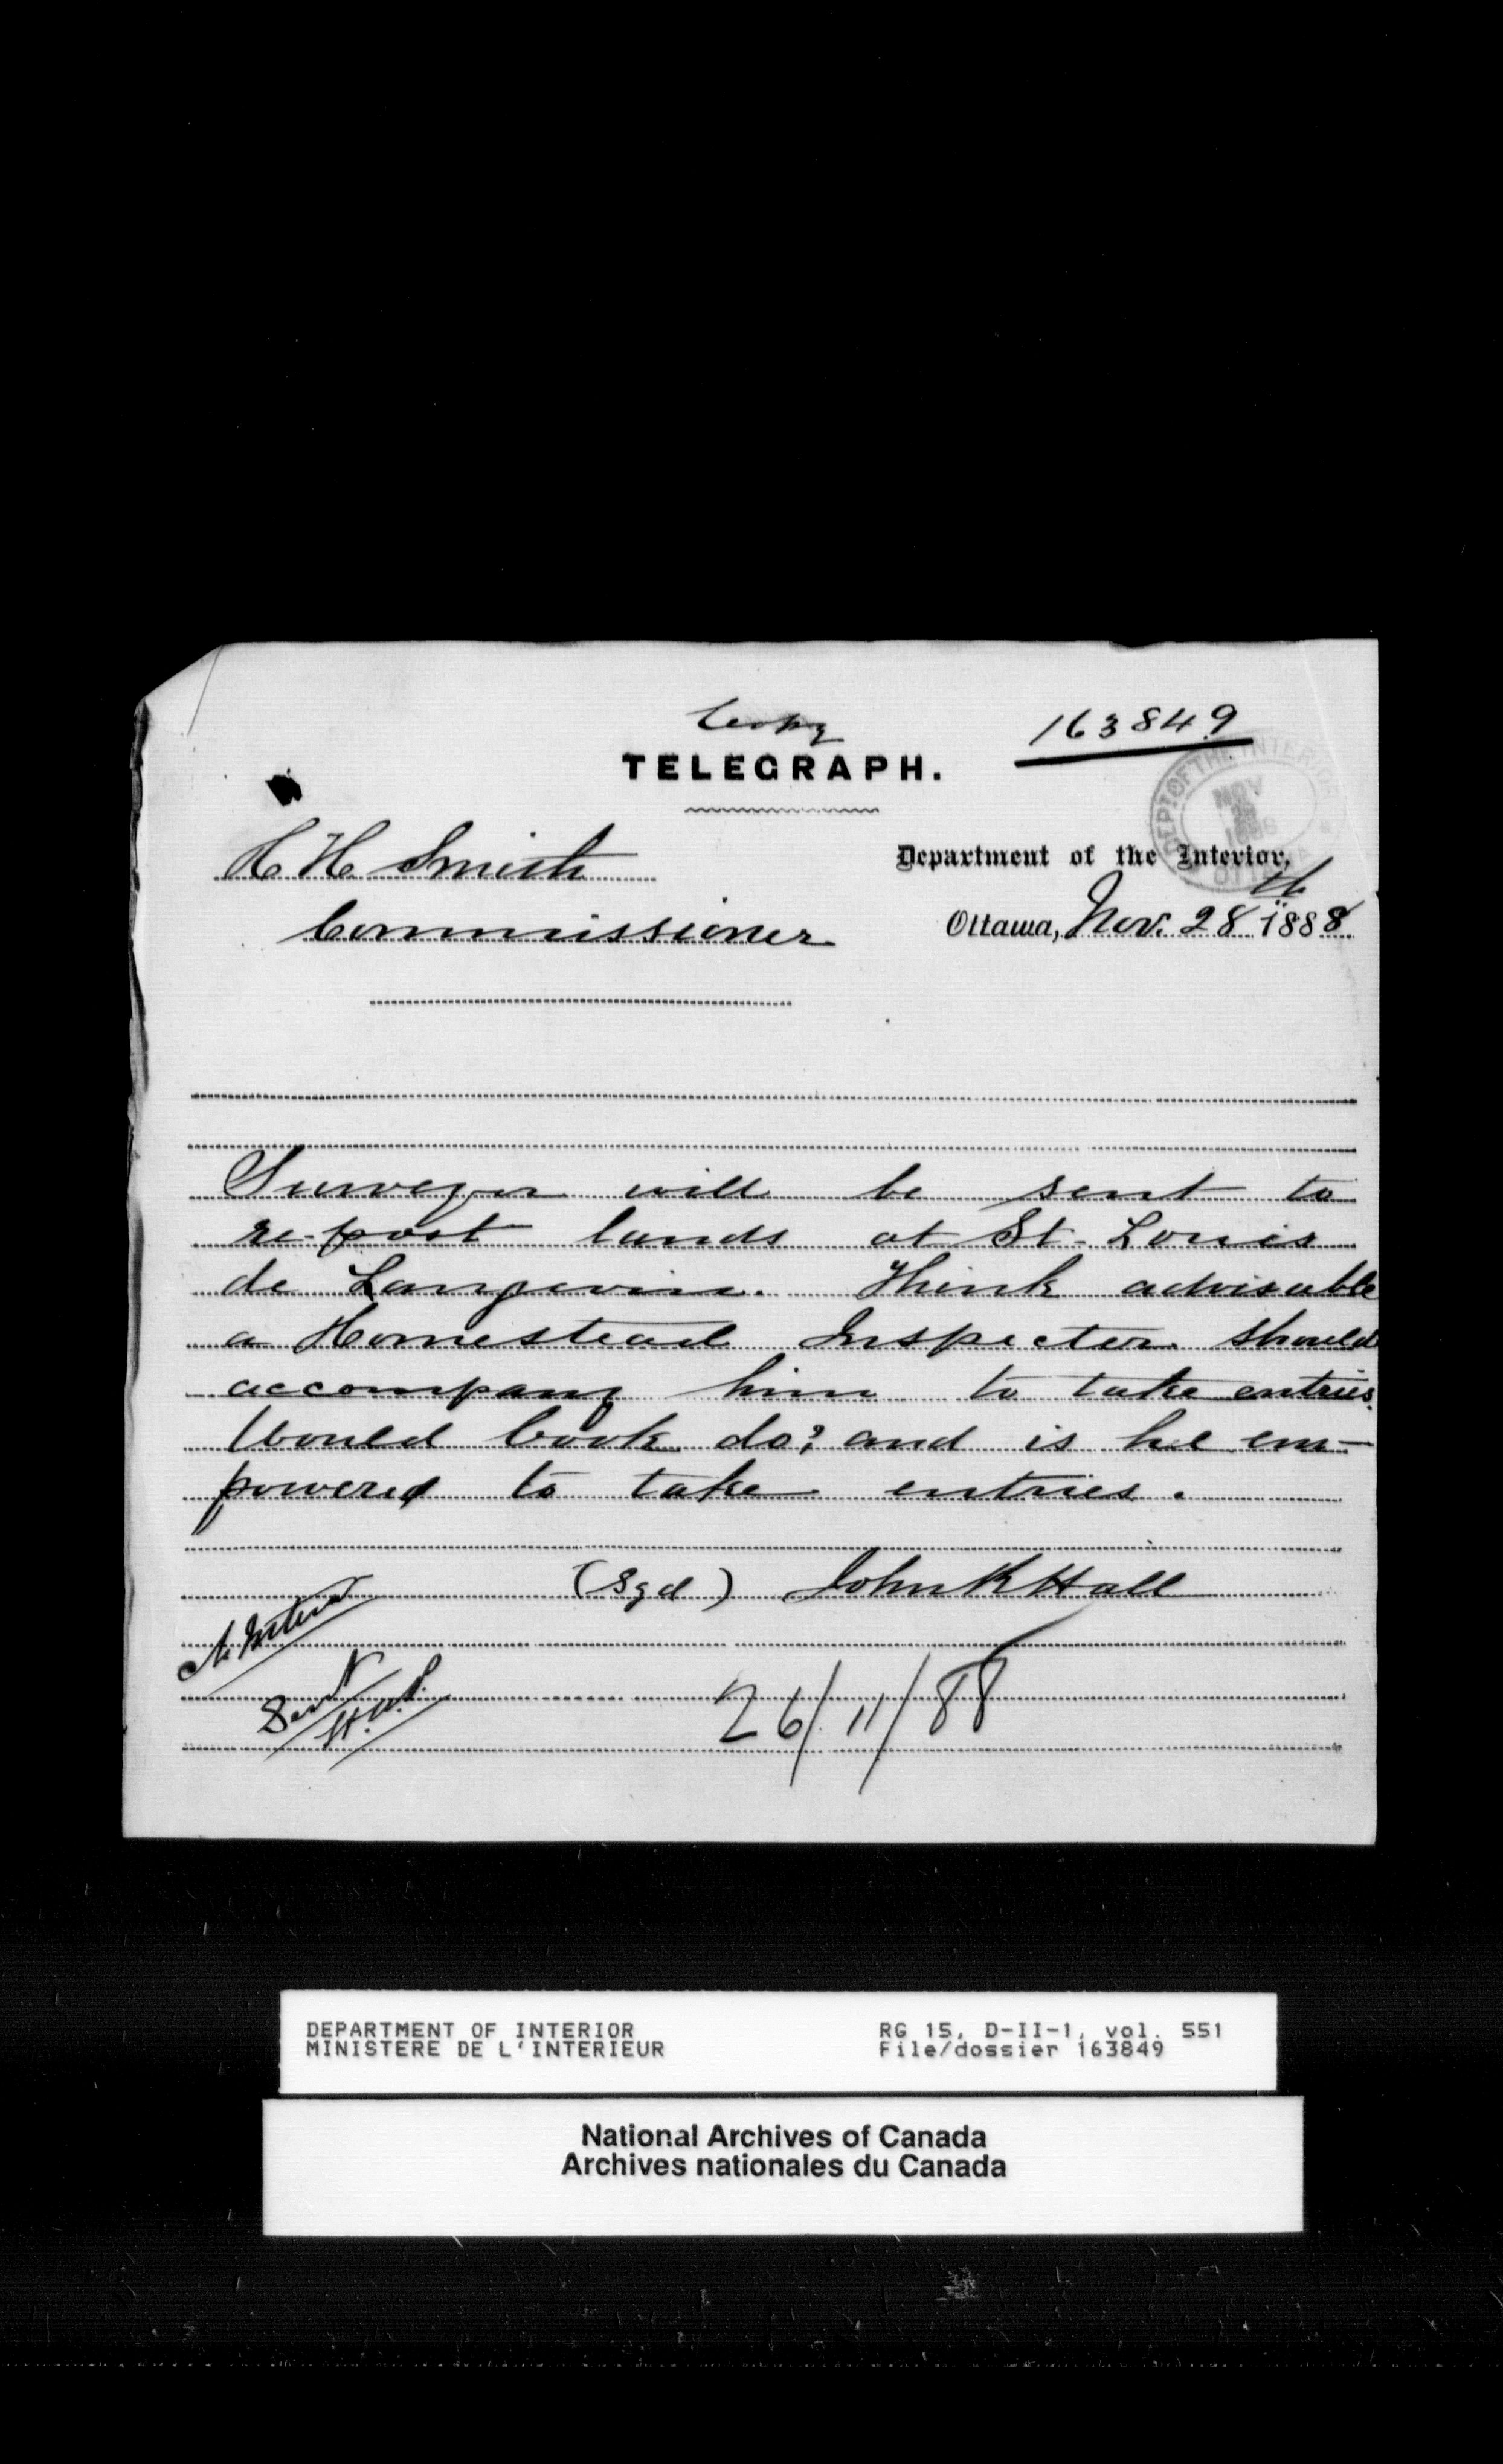 Copy
163849
TELEGRAPH.
DEPT OF THE INTERIOR
NOV
OTTAWA
H H Smith
Department of the Interior,
Commissioner
Ottawa, Nov. 28th 1888
Surveyor will be sent to
re-post lands at St. Louis
de Langevin. Think advisable
a Homestead Inspector should
accompany him to take entries.
Would Cook do? and is he em-
powered to take entries.
(Sgd) John R Hall
26/11/88
DEPARTMENT OF INTERIOR
MINISTERE DE L'INTERIEUR
RG 15, D-II-1, vol. 551
File/dossier 163849
National Archives of Canada
Archives nationales du Canada